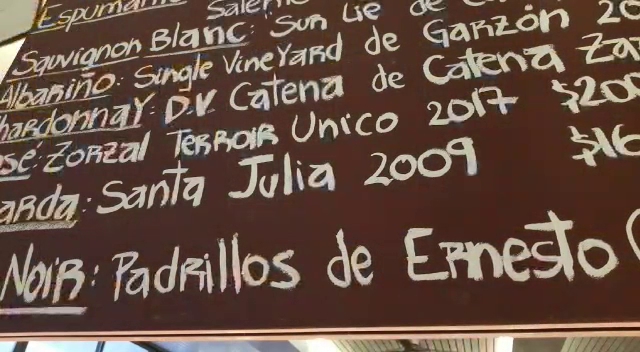 Espumante Salente
Sauvignon Blanc: Sur Lie de
Albariño: Single Vineyard de Garzón 20
hardonnay: D.V. Catena de Catena Za
sé: Zorzal Terroir Unico 2017 $200
arda: Santa Julia 2009 $16
Noir: Padrillos de Ernesto (